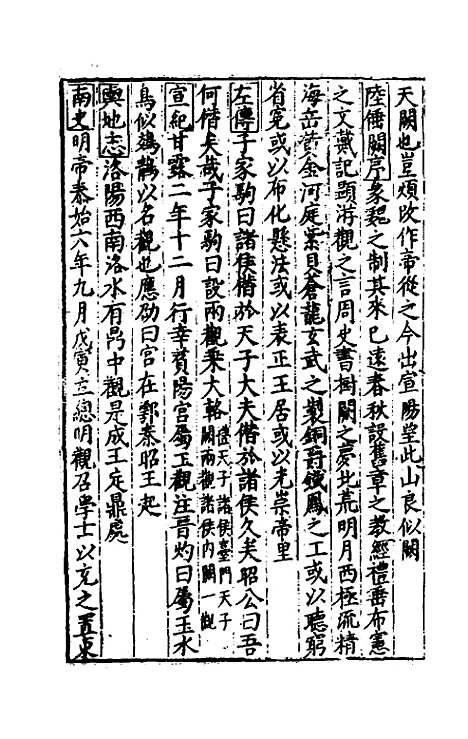 天闕也豈煩改作帝從之今出宣陽望此山良似闕
陸倕闕序象魏之制其來已遠春秋設舊章之教經禮垂布憲
之文戴記顯游觀之言周史書樹闕之夢北荒明月西極流精
海岳黃金河庭紫貝蒼龍玄武之製銅爵鐵鳳之工或以聽窮
省寃或以布化懸法或以表正王居或以光崇帝里
左傳子家駒曰諸侯僭於天子大夫僭於諸侯久矣昭公曰吾
何僭矣哉子家駒曰設兩觀乘大輅禮天子諸侯臺門天子闕兩觀諸侯内闕一觀
宣紀甘露二年十二月行幸萯陽宮屬玉觀注晉灼曰屬玉水
鳥似鵁鶄以名觀也應劭曰宮在鄠秦昭王起
輿地志洛陽西南洛水有鼎中觀是成王定鼎處
南史明帝泰始六年九月戊寅立總明觀召學士以充之置東